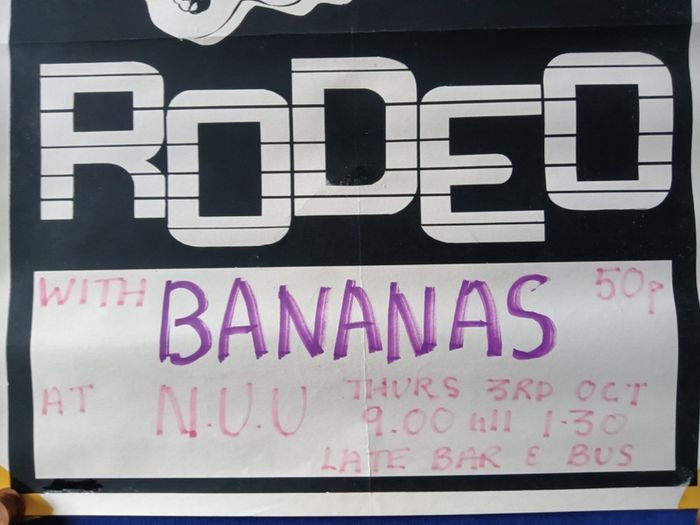 RODEO
WITH BANANAS 50p
AT N.U.U THURS 3RD OCT
9.00 till 1.30
LATE BAR & BUS